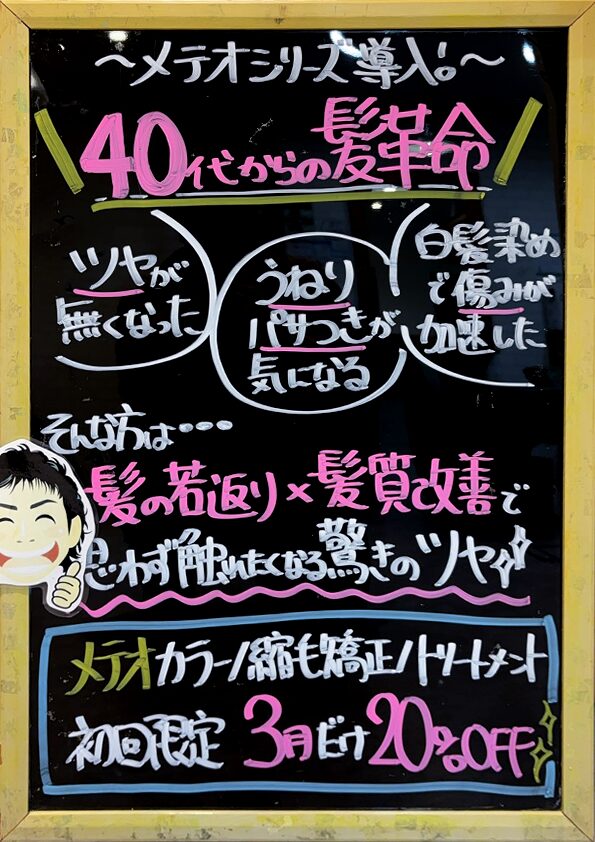 ～メテオシリーズ導入!～
40代からの髪革命
ツヤが
無くなった
うねり
パサつきが
気になる
白髪染め
で傷みが
加速した
そんな方は・・・
髪の若返り×髪質改善で
思わず触れたくなる驚きのツヤ
メテオカラー/縮毛矯正/トリートメント
初回限定 3月だけ20%OFF